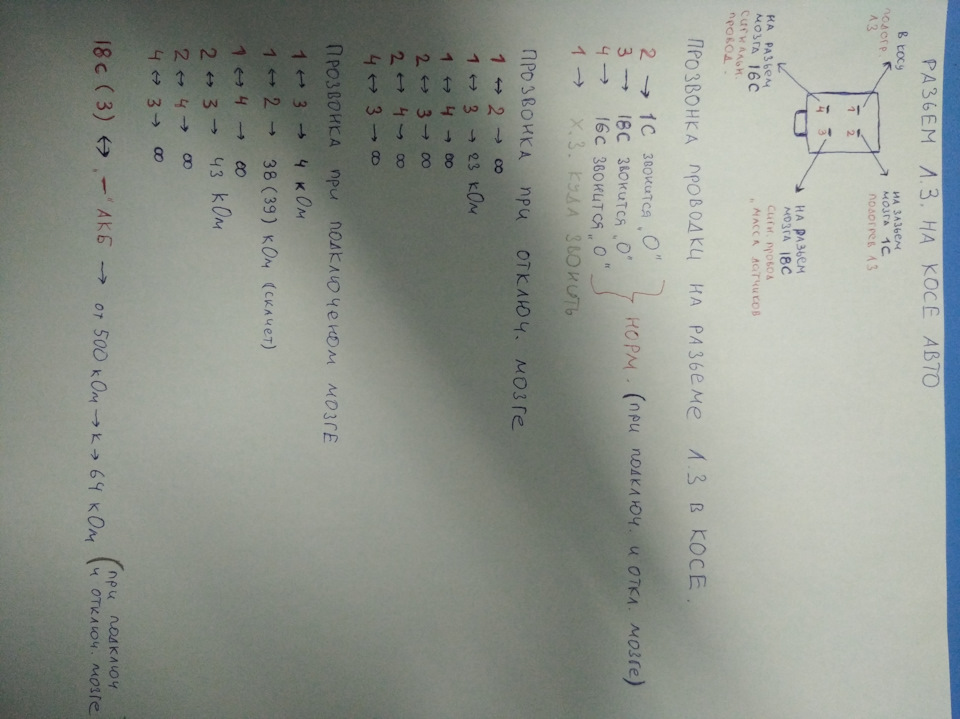 РАЗЬЕМ Л.З. НА КОСЕ АВТО
В КОСУ
ПОДОГР.
ЛЗ
НА ЗАЗЬЕМ
МОЗГА 1С
ПОДОГРЕВ ЛЗ
1 2
4 3
НА РАЗЬЕМ
МОЗГА 16С
СИГНАЛЬН.
ПРОВОД.
НА РАЗЬЕМ
МОЗГА 18С
СИГН. ПРОВОД
„МАССА ДАТЧИКОВ
ПРОЗВОНКА ПРОВОДКИ НА РАЗЬЕМЕ Л.З В КОСЕ.
2 → 1С ЗВОНИТСЯ „О"
3 → 18С ЗВОНИТСЯ „О"
4 → 16С ЗВОНИТСЯ „О"
НОРМ. (ПРИ ПОДКЛЮЧ. И ОТКЛ. МОЗГЕ)
1 → Х.З. КУДА ЗВОНИТЬ
ПРОЗВОНКА ПРИ ОТКЛЮЧ. МОЗГЕ
1 ↔ 2 → ∞
1 ↔ 3 → 23 кОм
1 ↔ 4 → ∞
2 ↔ 3 → ∞
2 ↔ 4 → ∞
4 ↔ 3 → ∞
ПРОЗВОНКА ПРИ ПОДКЛЮЧЕНОМ МОЗГЕ
1 ↔ 3 → 4 кОм
1 ↔ 2 → 38(39) кОм (скачет)
1 ↔ 4 → ∞
2 ↔ 3 → 43 кОм
2 ↔ 4 → ∞
4 ↔ 3 → ∞
18С (3) ↔ „—" АКБ → от 500 кОм → к → 64 кОм (при подключ
и отключ. мозге